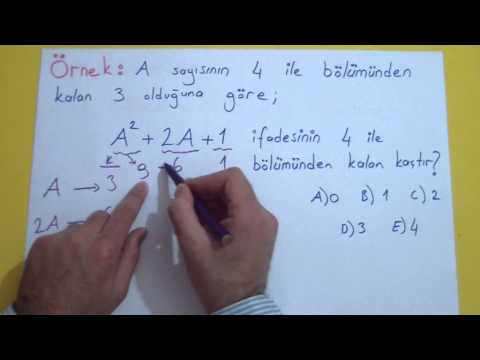 Örnek: A sayısının 4 ile bölümünden
kalan 3 olduğuna göre;
A² + 2A + 1 ifadesinin 4 ile
bölümünden kalan kaçtır?
K 9 6 1
A → 3
2A →
A) 0 B) 1 C) 2
D) 3 E) 4